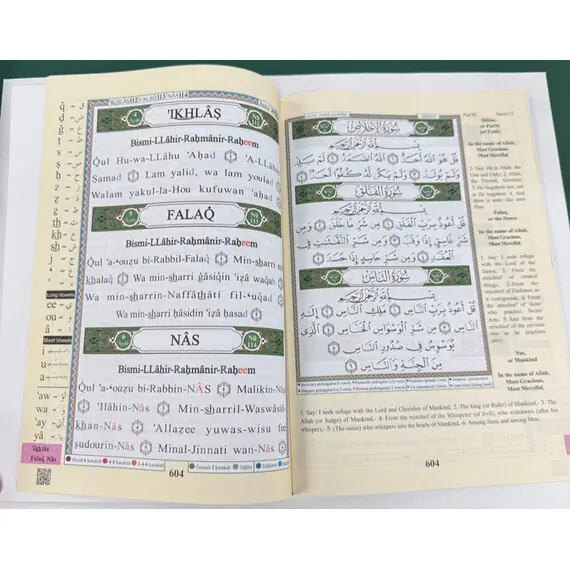 'IKHLÂṢ
Bismi-LLâhir-Raḥmânir-Raḥeem
Q̇ul Hu-wa-LLâhu 'Aḥad 'A-LLâhu-ṣ
Ṣamad Lam yalid, wa lam youlad
Walam yakul-la-Hou kufuwan 'aḥad
FALAQ̇
Bismi-LLâhir-Raḥmânir-Raḥeem
Q̇ul 'a-ʿouzu bi-Rabbil-Falaq̇ Min-sharri
khalaq̇ Wa min-sharri ġâsiq̇in 'iẓâ waqab
Wa min-sharrin-Naffâthâti fil-ʿuq̇ad
Wa min-sharri ḥâsidin 'iẓâ ḥasad
NÂS
Bismi-LLâhir-Raḥmânir-Raḥeem
Q̇ul 'a-ʿouzu bi-Rabbin-NÂS Malikin-Nâs
'Ilâhin-Nâs Min-sharril-Waswâsil
'Allazee yuwas-wisu fee
ṣudourin-Nâs Minal-Jinnati wan-Nâs
604
Long Vowels
ee
ou
â
Short Vowels
u
a
aw
ay
'Ikhlâṣ
Falaq̇ Nâs
سُورَةُ الْإِخْلَاصِ
بِسْمِ اللَّهِ الرَّحْمَٰنِ الرَّحِيمِ
قُلْ هُوَ اللَّهُ أَحَدٌ ١ اللَّهُ الصَّمَدُ ٢ لَمْ يَلِدْ
وَلَمْ يُولَدْ ٣ وَلَمْ يَكُن لَّهُ كُفُوًا أَحَدٌ ٤
سُورَةُ الْفَلَقِ
بِسْمِ اللَّهِ الرَّحْمَٰنِ الرَّحِيمِ
قُلْ أَعُوذُ بِرَبِّ الْفَلَقِ ١ مِن شَرِّ مَا خَلَقَ ٢ وَمِن
شَرِّ غَاسِقٍ إِذَا وَقَبَ ٣ وَمِن شَرِّ النَّفَّاثَاتِ فِي
الْعُقَدِ ٤ وَمِن شَرِّ حَاسِدٍ إِذَا حَسَدَ ٥
سُورَةُ النَّاسِ
بِسْمِ اللَّهِ الرَّحْمَٰنِ الرَّحِيمِ
قُلْ أَعُوذُ بِرَبِّ النَّاسِ ١ مَلِكِ النَّاسِ ٢ إِلَٰهِ
النَّاسِ ٣ مِن شَرِّ الْوَسْوَاسِ الْخَنَّاسِ ٤ الَّذِي
يُوَسْوِسُ فِي صُدُورِ النَّاسِ ٥
مِنَ الْجِنَّةِ وَالنَّاسِ ٦
Ikhlas,
or Purity
(of Faith)
In the name of Allah,
Most Gracious,
Most Merciful.
1. Say: He is Allah, the
One and Only; 2. Allah,
the Eternal, Absolute; 3.
He begetteth not, nor
is He begotten; 4. And
there is none like unto
Him.
Falaq,
or the Dawn
In the name of Allah,
Most Gracious,
Most Merciful.
1. Say: I seek refuge
with the Lord of the
Dawn, 2. From the
mischief of created
things; 3. From the
mischief of Darkness as
it overspreads; 4. From
the mischief of those
who practise Secret
Arts; 5. And from the
mischief of the envious
one as he practises
envy.
Nas,
or Mankind
In the name of Allah,
Most Gracious,
Most Merciful.
1. Say: I seek refuge with the Lord and Cherisher of Mankind, 2. The king (or Ruler) of Mankind,- 3. The
Allah (or Judge) of Mankind,- 4. From the mischief of the Whisperer (of Evil), who withdraws (after his
whisper),- 5. (The same) who whispers into the hearts of Mankind,- 6. Among Jinns and among Men.
604